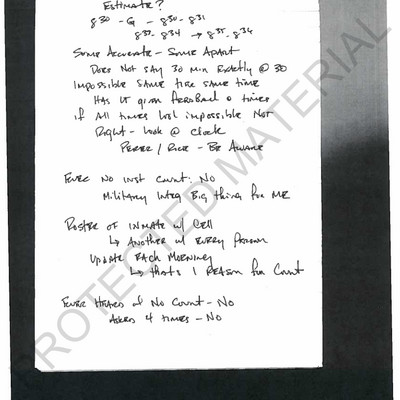 ESTIMATE?
830 - G - 830-831
833-834 → 835-836
Some Accurate - Some Apart
Does Not say 30 min Exactly @ 30
Impossible Same time same time
Has LT given feedback @ times
if All times look impossible Not
Right - Look @ Clock
Perez / Rice - Be Aware
Ever No Inst Count: No
Military Integ Big thing for ME
Roster of Inmate w/ Cell
↳ Another w/ Every Person
Update Each Morning
↳ that's 1 Reason for Count
Ever Heard of No Count - No
Asked 4 times - No
PROTECTED MATERIAL